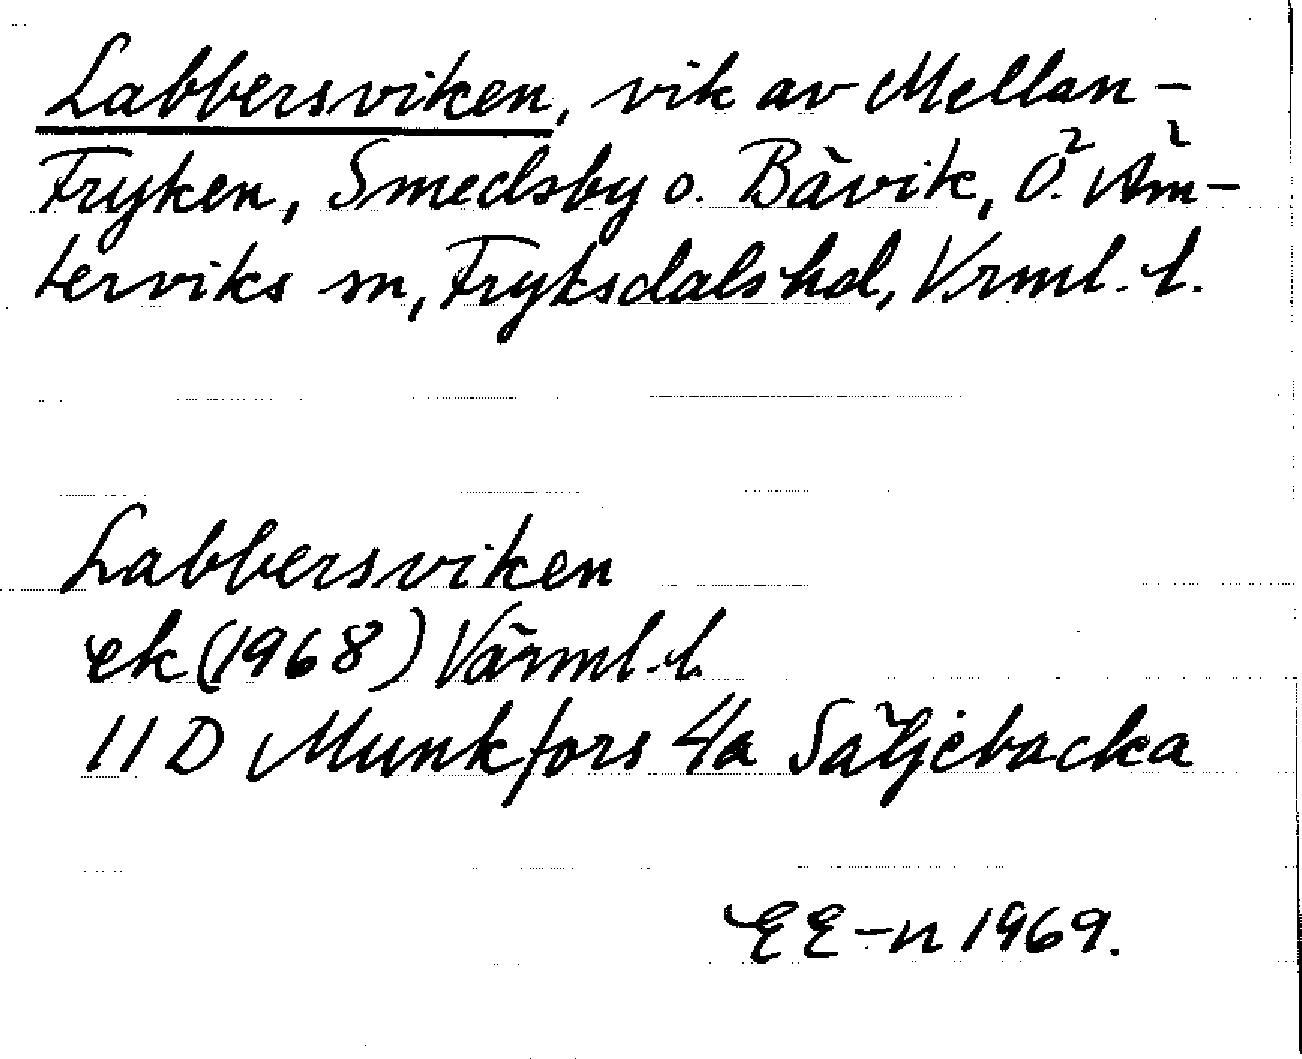 Labbersviken, vik av Mellan-
Fryken, Smedsby o. Bävik, Ö. Äm-
terviks sn, Fryksdals hd, Vrml. l.
Labbersviken
ek (1968) Värml. l.
11 D Munkfors 4a Säljebacka
EE-n 1969.